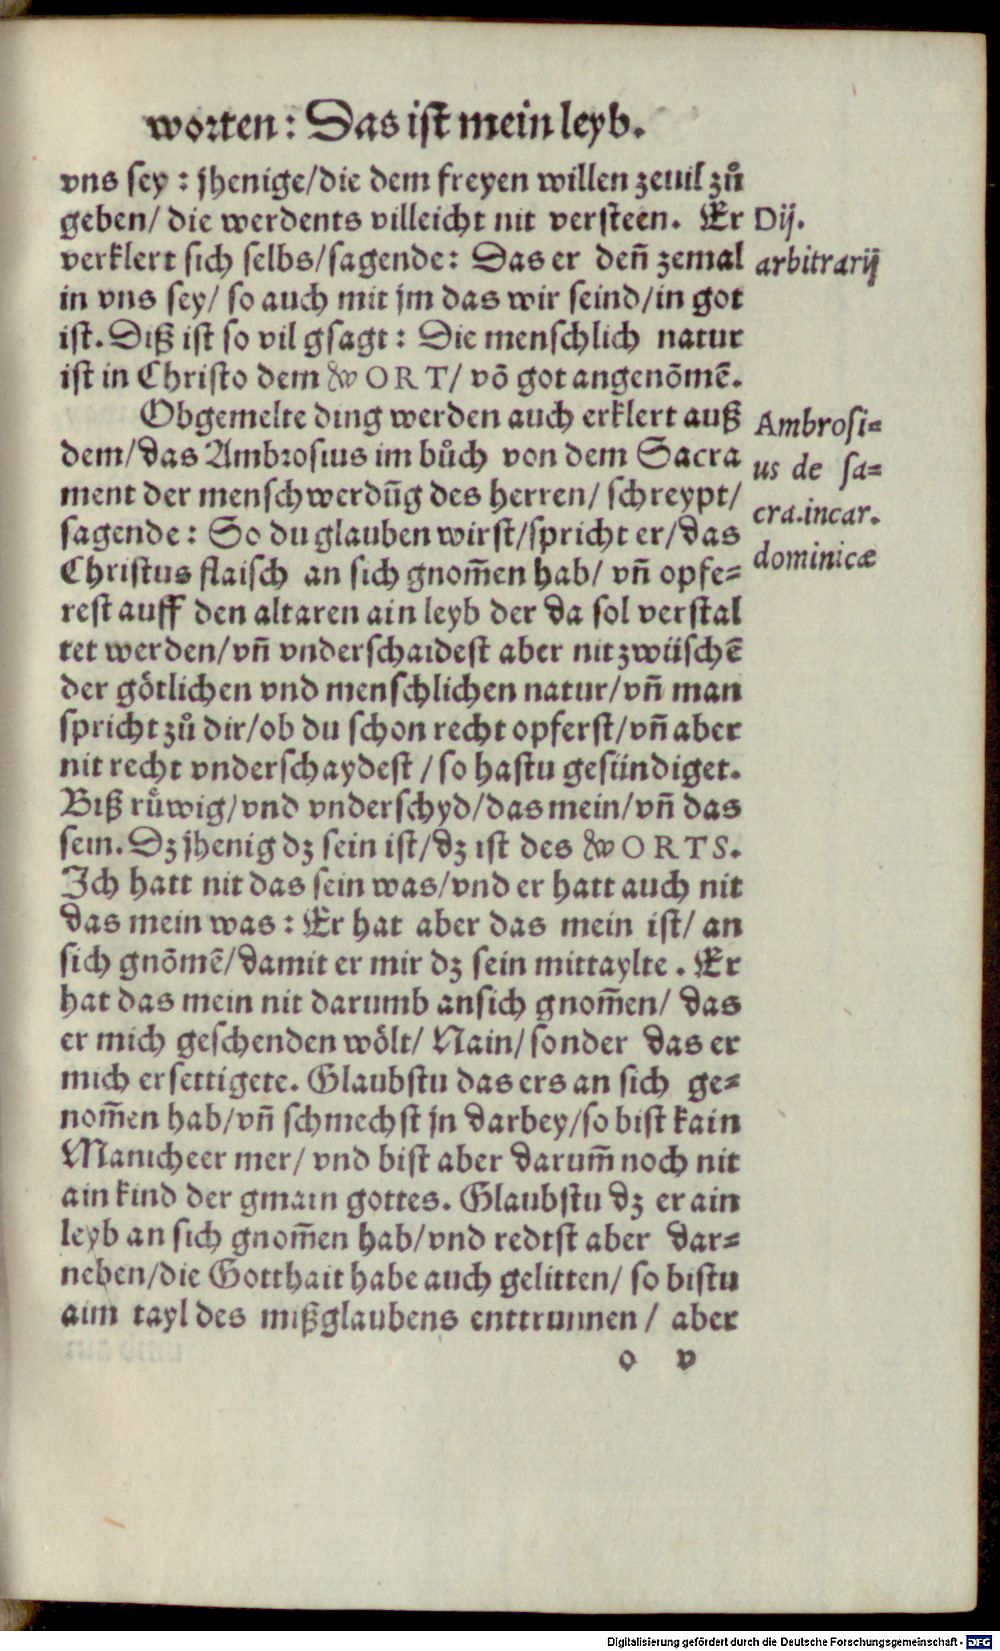 worten: Das ist mein leyb.
vns sey : jhenige/die dem freyen willen zeuil zů
geben/ die werdents villeicht nit versteen. Er
Dij.
verklert sich selbs/sagende: Das er den̄ zemal
arbitrarij
in vns sey/ so auch mit jm das wir seind/in got
ist. Diß ist so vil gsagt: Die menschlich natur
ist in Christo dem WORT/ võ got angenõmẽ.
Obgemelte ding werden auch erklert auß
Ambrosi=
dem/das Ambrosius im bůch von dem Sacra
us de sa=
ment der menschwerdũg des herren/ schreypt/
cra.incar.
sagende: So du glauben wirst/spricht er/das
dominicæ
Christus flaisch an sich gnom̄en hab/ vn̄ opfe=
rest auff den altaren ain leyb der da sol verstal
tet werden/vn̄ vnderschaidest aber nit zwüschẽ
der götlichen vnd menschlichen natur/vn̄ man
spricht zů dir/ob du schon recht opferst/vn̄ aber
nit recht vnderschaydest /so hastu gesündiget.
Biß růwig/vnd vnderschyd/das mein/vn̄ das
sein. Dz jhenig dz sein ist/dz ist des WORTS.
Ich hatt nit das sein was/vnd er hatt auch nit
das mein was: Er hat aber das mein ist/ an
sich gnõmẽ/damit er mir dz sein mittaylte. Er
hat das mein nit darumb ansich gnom̄en/ das
er mich geschenden wölt/ Nain/sonder das er
mich ersettigete. Glaubstu das ers an sich ge=
nom̄en hab/vn̄ schmechst jn darbey/so bist kain
Manicheer mer/ vnd bist aber darum̄ noch nit
ain kind der gmain gottes. Glaubstu dz er ain
leyb an sich gnom̄en hab/vnd redtst aber dar=
neben/die Gotthait habe auch gelitten/ so bistu
aim tayl des mißglaubens enttrunnen/ aber
o v
Digitalisierung gefördert durch die Deutsche Forschungsgemeinschaft - DFG